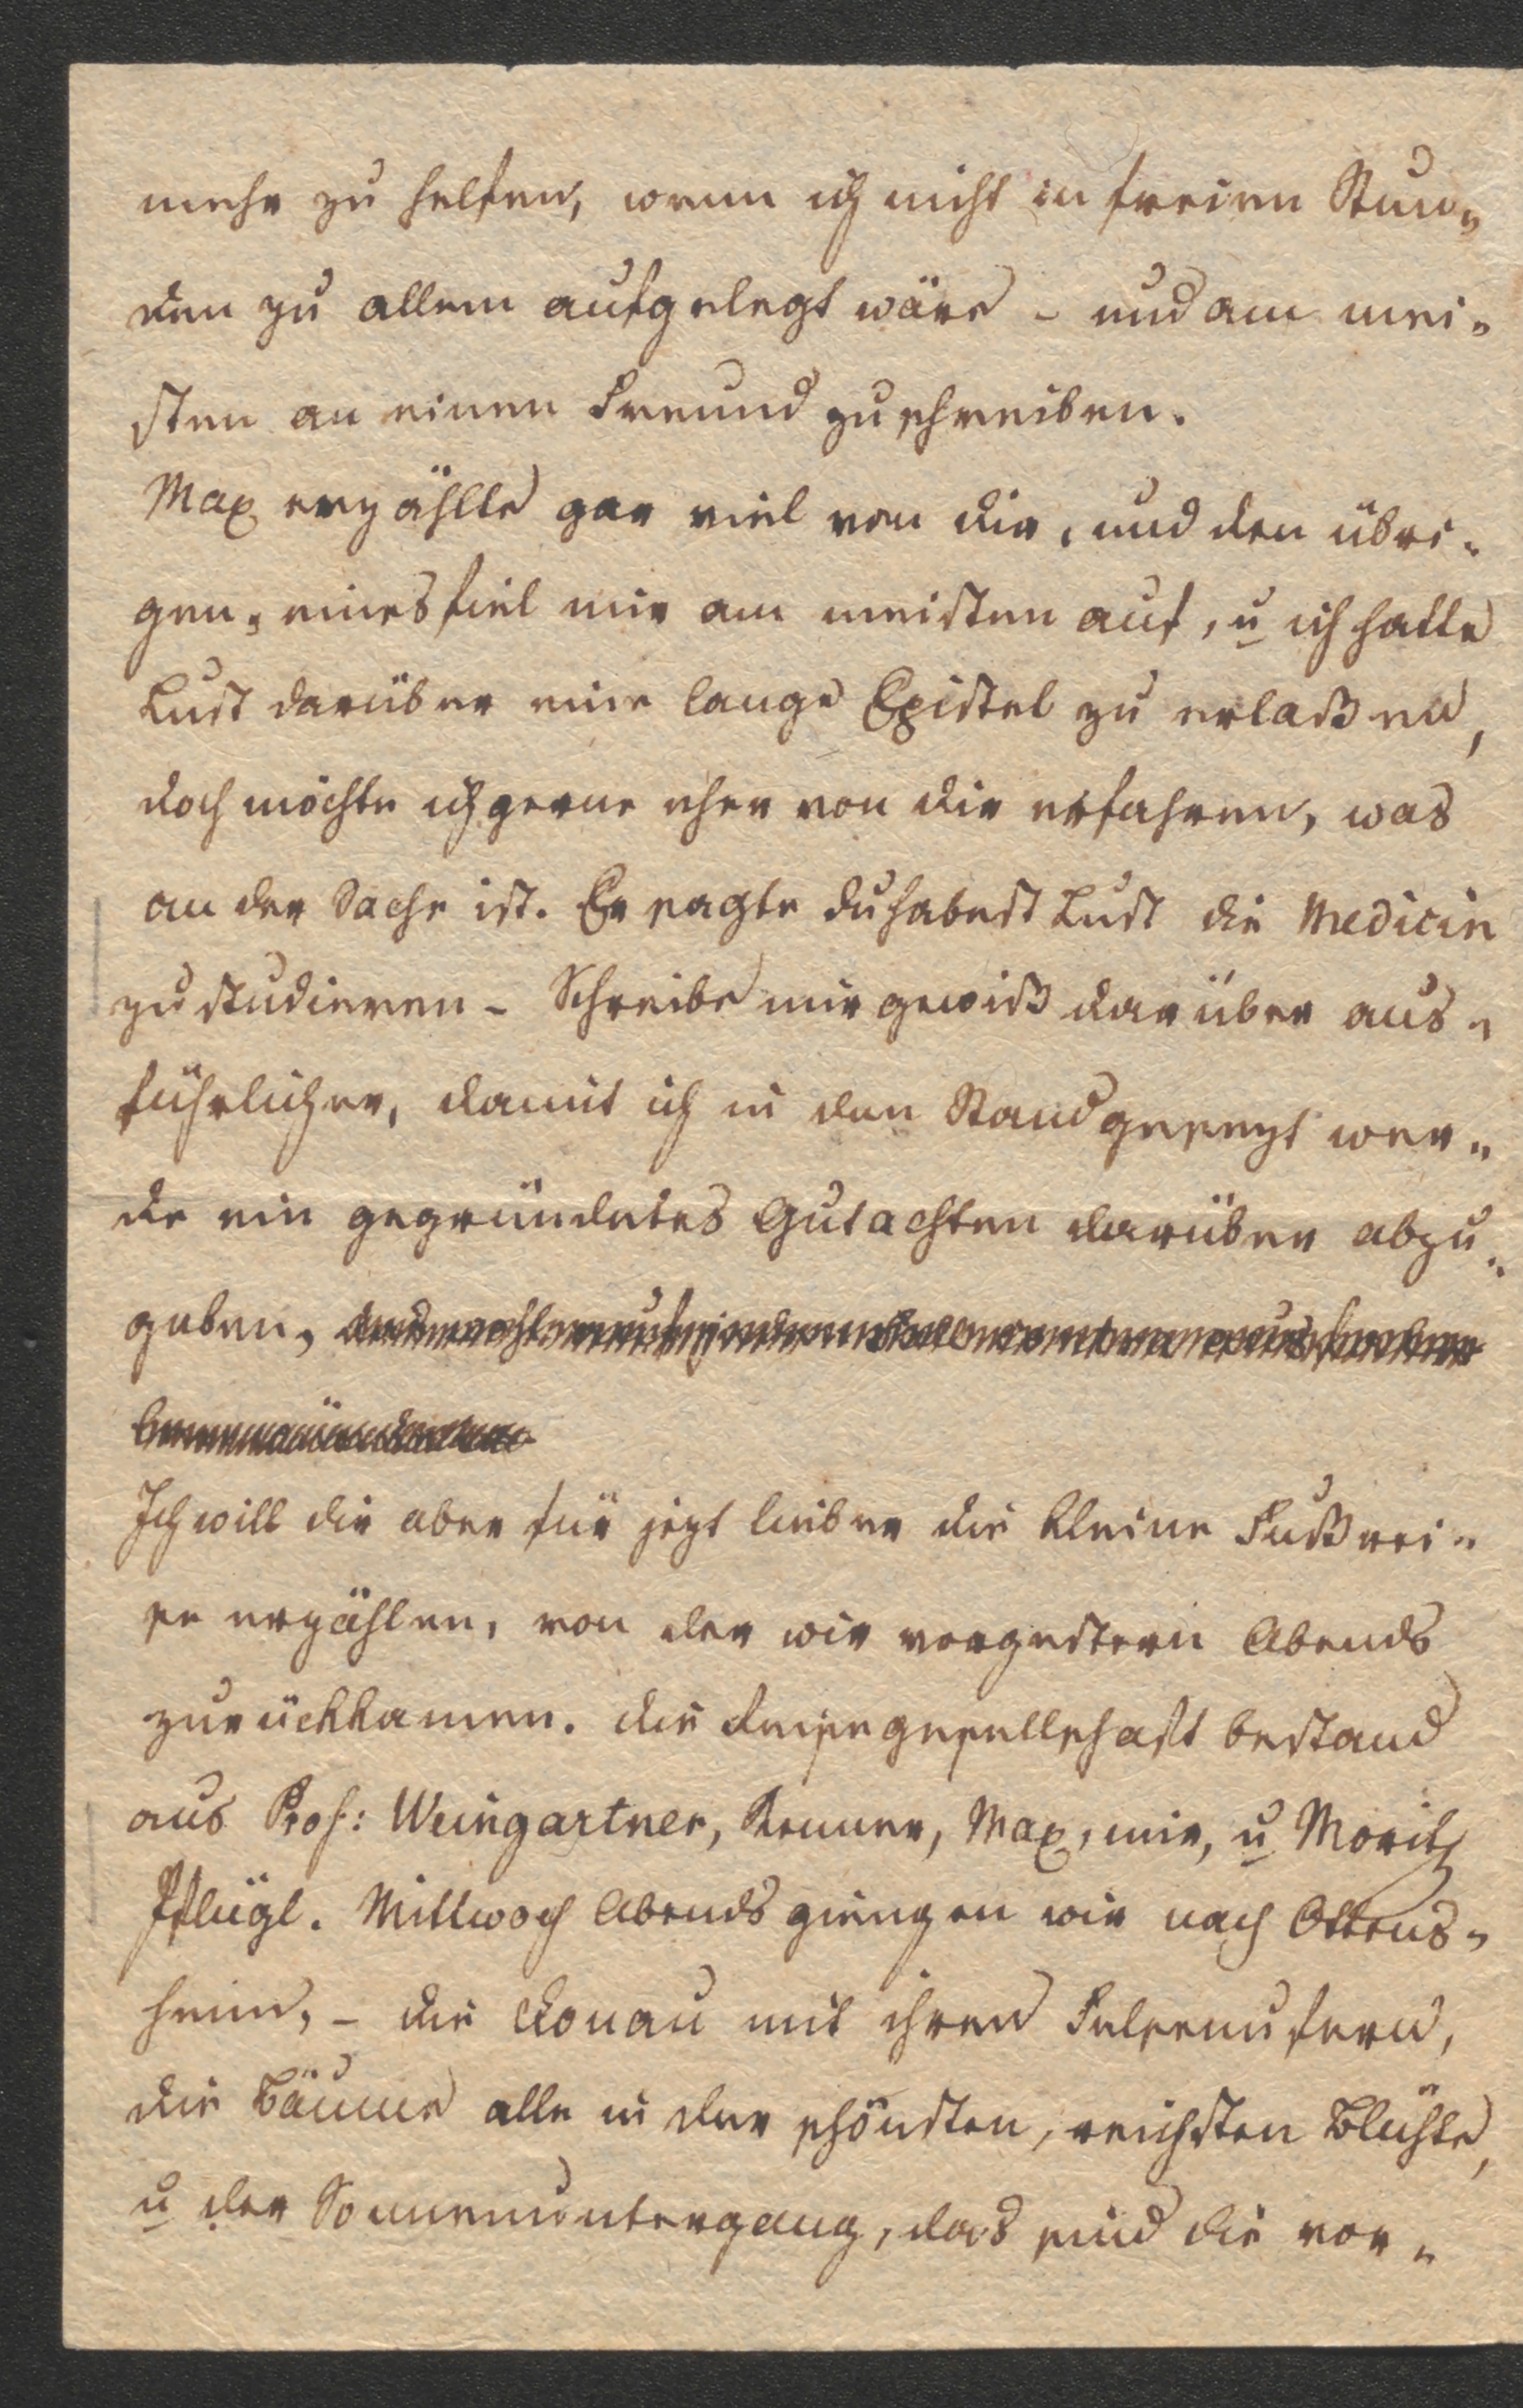 mehr zu helfen, wenn ich nicht in freien Stun„
den zu allem aufgelegt wäre – und am mei„
sten an einen Freund zu schreiben.
Max erzählte gar viel von dir, und den übri„
gen, eines fiel mir am meisten auf, u ich hatte
Lust darüber eine lange Epistel zu erlaßen,
doch möchte ich gerne eher von dir erfahren, was
an der Sache ist. Er sagte du habest Lust die Medicin
zu studieren – Schreibe mir gewiß darüber aus„
führlicher, damit ich in den Stand gesezt wer„
de ein gegründetes Gutachten darüber abzu„
geben,
Ich will dir aber für jezt lieber die kleine Fußrei„
se erzählen, von der wir vorgestern Abends
zurückkamen. die Reisegesellschaft bestand
aus Prof: Weingartner, Kenner, Max, mir, u Moritz
Pflügl. Mittwoch Abends giengen wir nach Ottens„
heim, – die Donau mit ihren Felsenufern,
die Bäume alle in der schönsten, reichsten Blühte,
u der Sonnenuntergang, das sind die vor„